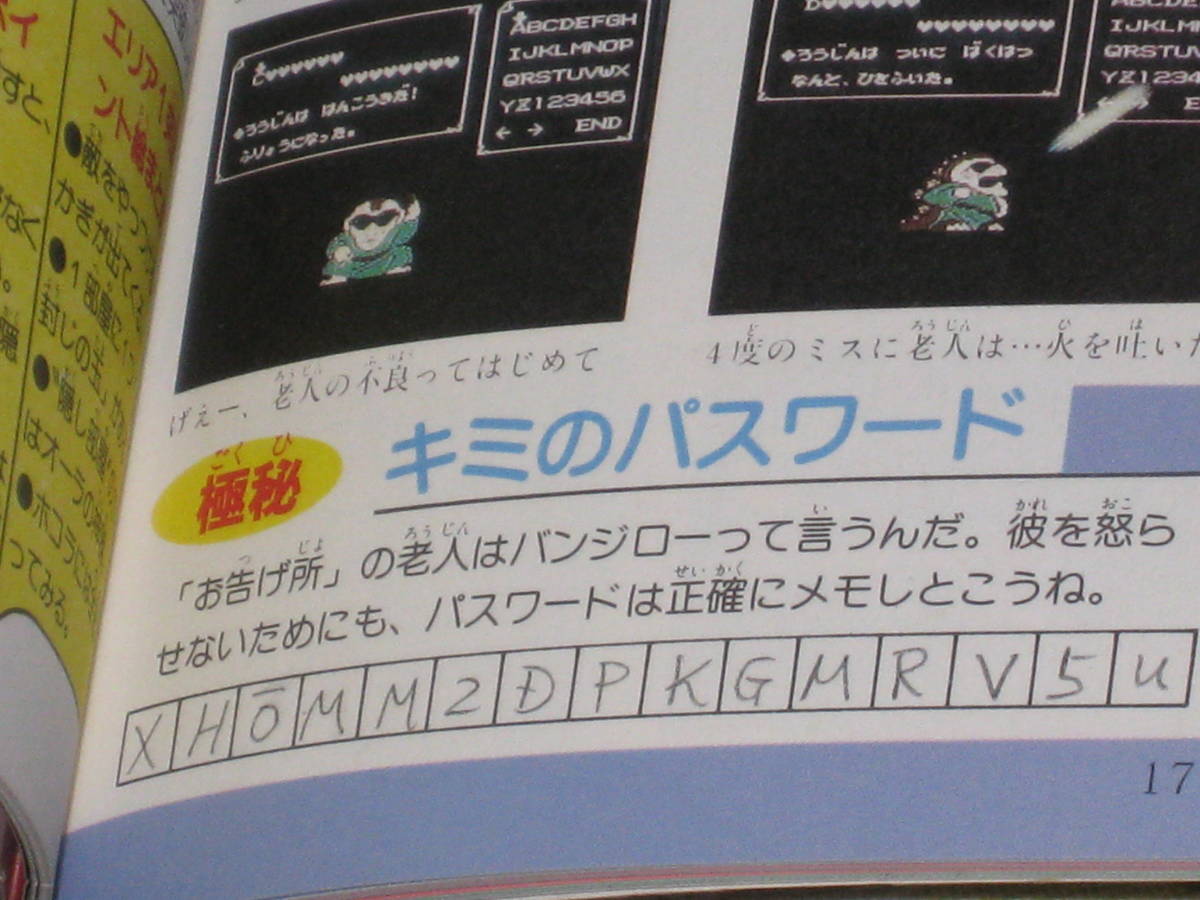 エリア1
ント
●敵をやっつ
かぎが出てく
●1部屋に
封じの玉」が
●隠し部屋
はオーラの
●ホコラに
ってみる。
すと、
なく
ABCDEFGH
IJKLMNOP
QRSTUVWX
YZ123456
← → END
◆ろうじんは はんこうきだ!
ふりょうになった。
IJKLM
QRSTU
YZ1234
◆ろうじんは ついに ばくはつ
なんと、ひをふいた。
げえー、老人の不良ってはじめて
4度のミスに老人は…火を吐いた
極秘
キミのパスワード
「お告げ所」の老人はバンジローって言うんだ。彼を怒ら
せないためにも、パスワードは正確にメモしとこうね。
X H Ō M M 2 Đ P K G M R V 5 U
17